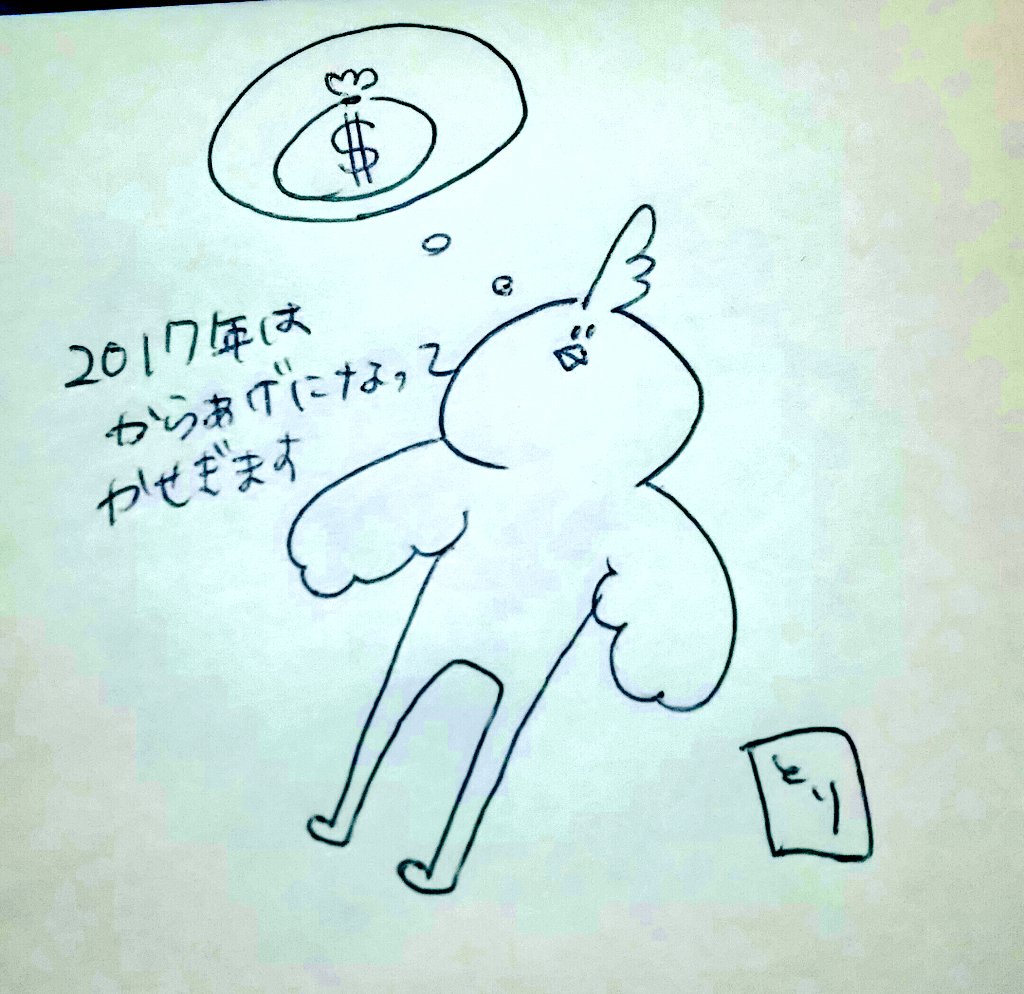 $
2017年は
からあげになって
かせぎます
とり